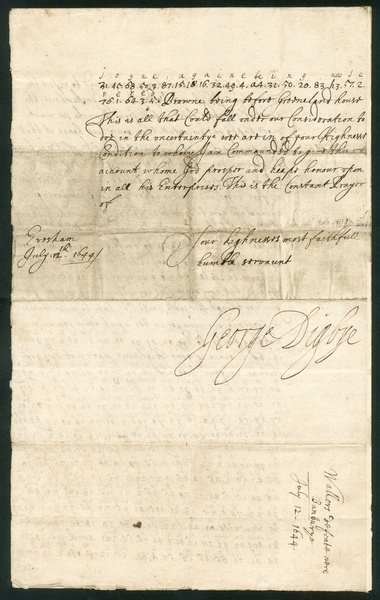 joyne againe being new se
31.45.68.50.3.87.15.18.16.32.49.4.44.31.50.20.83.13.57.2
76.1.64.3.45. Browne being before Greeneland house
This is all that Could fall under our Consideration to
doe in the uncertainty wee are in of your Highness
Condition to whom I am Commanded to give this
account whome God prosper and heape honour upon
in all his Enterprises. This is the Constant Prayer
of
Evesham
July 12th. 1644
Your highnesses most faithfull
humble servaunt
George Digbye
Wallers defeate nere
Banburye
July 12. 1644